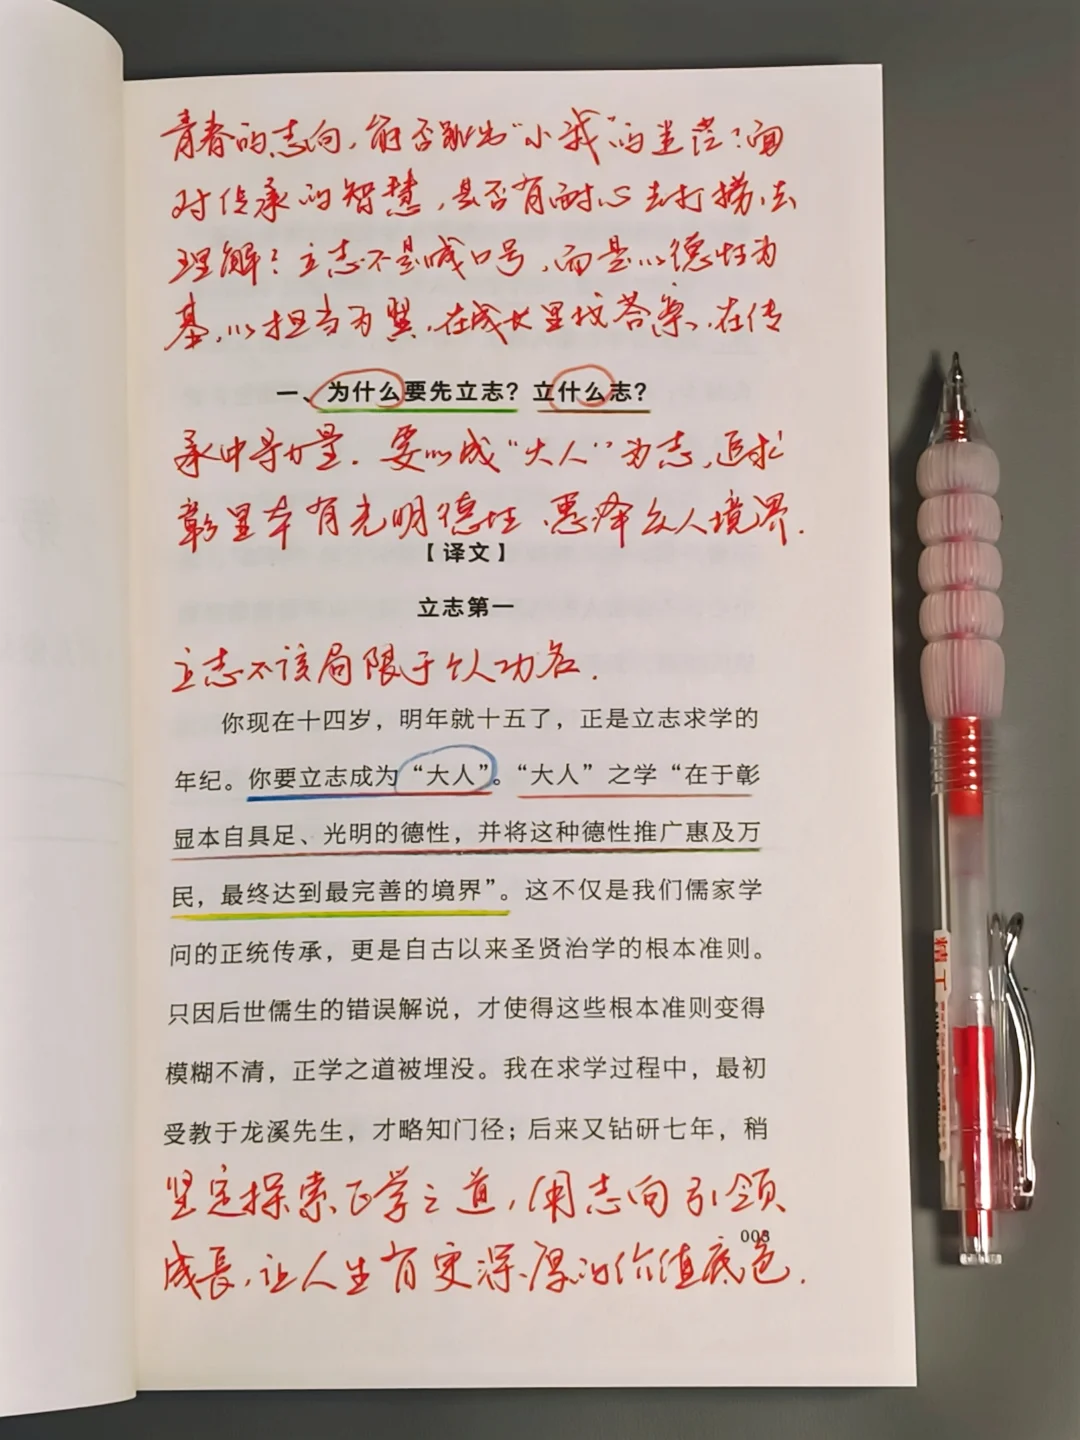 青春的志向，能否跳出“小我”的迷茫？面
对传承的智慧，是否有耐心去打捞、去
理解？立志不是喊口号，而是以德性为
基，以担当为翼，在成长里找答案，在传
一、为什么要先立志？立什么志？
承中寻力量。要以成“大人”为志，追求
彰显本有光明德性、惠泽众人境界。
【译文】
立志第一
立志不该局限于个人功名。
你现在十四岁，明年就十五了，正是立志求学的
年纪。你要立志成为“大人”。“大人”之学“在于彰
显本自具足、光明的德性，并将这种德性推广惠及万
民，最终达到最完善的境界”。这不仅是我们儒家学
问的正统传承，更是自古以来圣贤治学的根本准则。
只因后世儒生的错误解说，才使得这些根本准则变得
模糊不清，正学之道被埋没。我在求学过程中，最初
受教于龙溪先生，才略知门径；后来又钻研七年，稍
坚定探索正学之道，用志向引领
003
成長，让人生有更深厚的价值底色。
精工